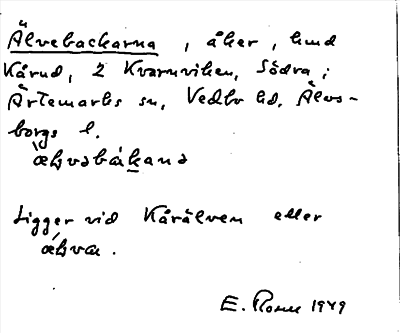 Älvebackarna, åker, hmd
Kårud, 2 Kvarnviken, Södra;
Ärtemarks sn, Vedbo hd, Älvs-
borgs l.
æḷvəbàkana
Ligger vid Kårälven eller
æ̀ḷva.
E. 1949